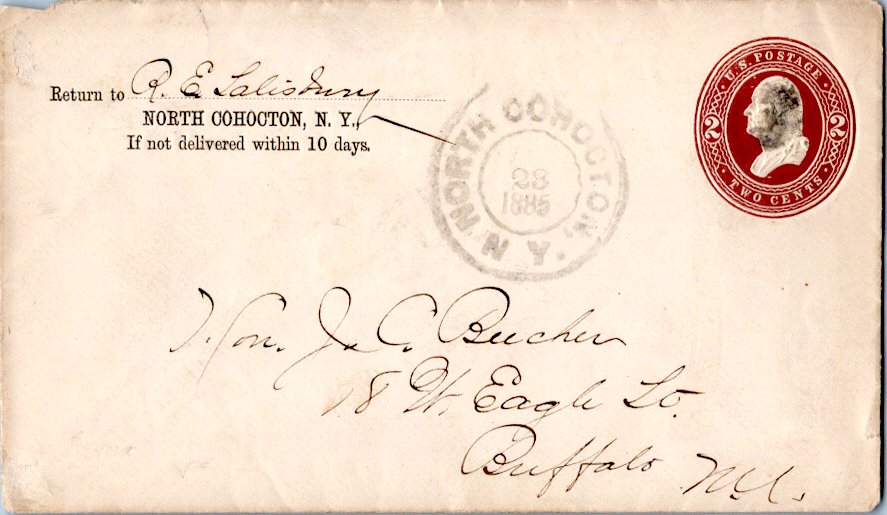 Return to R. E. Salisbury
NORTH COHOCTON, N. Y.,
If not delivered within 10 days.
NORTH COHOCTON, N. Y.
23
1885
U.S. POSTAGE
2 2
TWO CENTS
Hon. J. C. Beecher
18 W. Eagle St.
Buffalo N.Y.